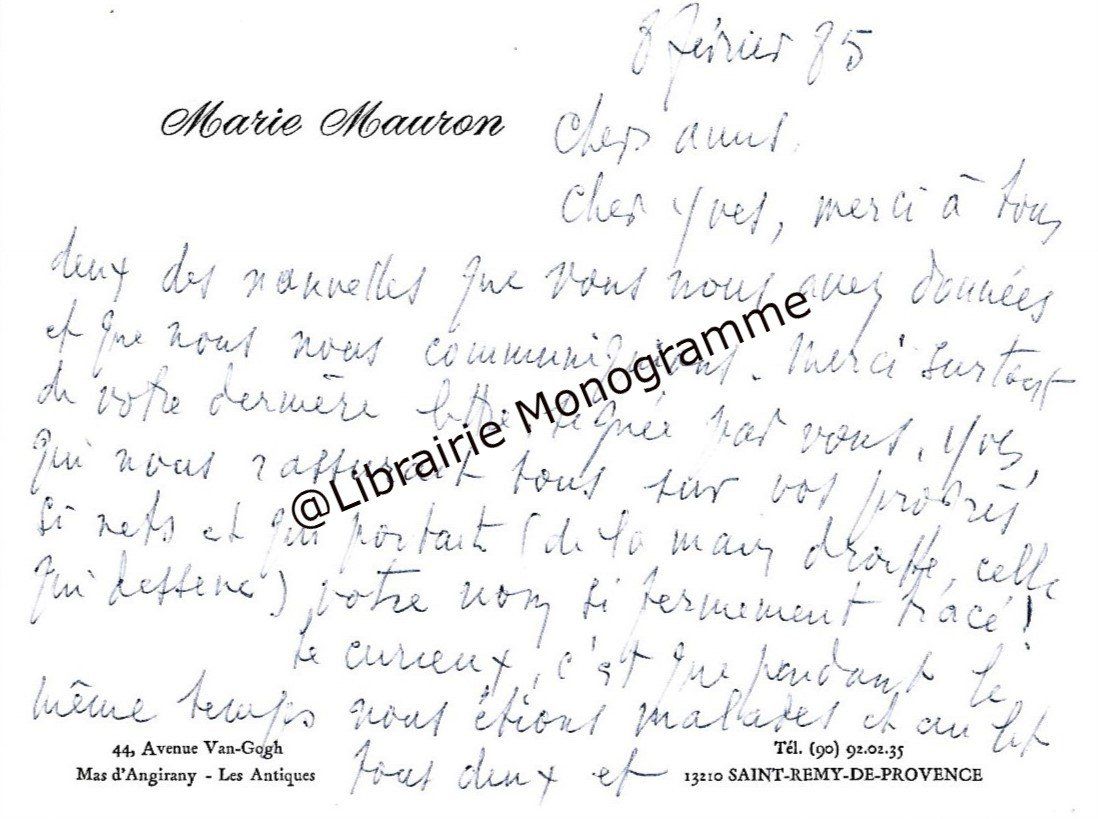 8 février 85
Marie Mauron
Chers amis,
Cher Yves, merci à tous
deux des nouvelles que vous nous avez données
et que nous nous communiquons. Merci surtout
de votre dernière lettre signée par vous, Yves,
qui nous rassurait tous sur vos progrès
si nets et qui portait (de la main droite, celle
qui dessine) votre nom si fermement tracé !
Le curieux, c'est que pendant le
même temps nous étions malades et au lit
tous deux et
@Librairie Monogramme
44, Avenue Van-Gogh
Mas d'Angirany - Les Antiques
Tél. (90) 92.02.35
13210 SAINT-REMY-DE-PROVENCE